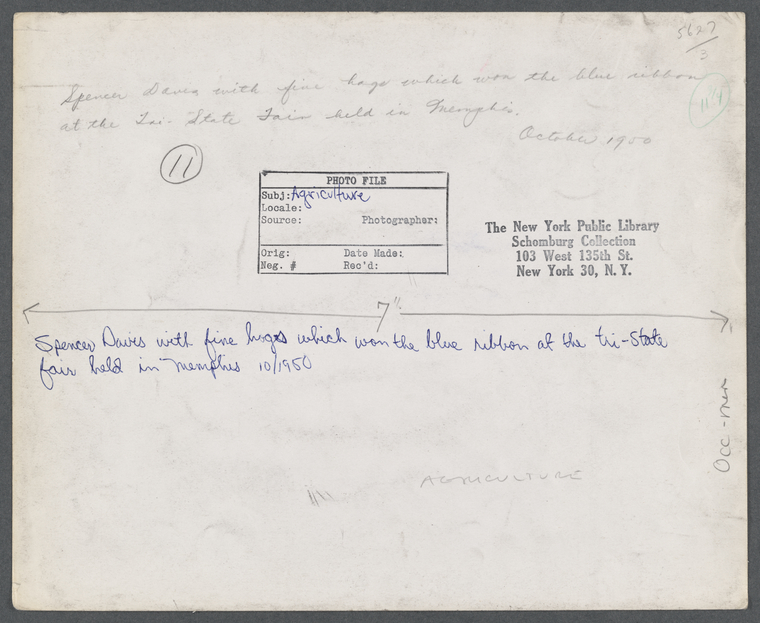 5627
3
Spencer Davis with fine hogs which won the blue ribbon
at the Tri-State Fair held in Memphis.
October 1950
11
PHOTO FILE
Subj: Agriculture
Locale:
Source: Photographer:
Orig: Date Made:
Neg. # Rec'd:
The New York Public Library
Schomburg Collection
103 West 135th St.
New York 30, N. Y.
7"
Spencer Davis with fine hogs which won the blue ribbon at the tri-State
fair held in Memphis 10/1950
Occ-men
AGRICULTURE